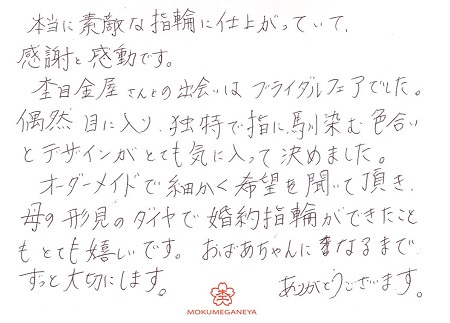 本当に素敵な指輪に仕上がっていて、
感謝と感動です。
杢目金屋さんとの出会いはブライダルフェアでした。
偶然目に入り、独特で指に馴染む色合い
とデザインがとても気に入って決めました。
オーダーメイドで細かく希望を聞いて頂き、
母の形見のダイヤで婚約指輪ができたこと
もとても嬉しいです。おばあちゃんになるまで
ずっと大切にします。 ありがとうございます。
杢
MOKUMEGANEYA